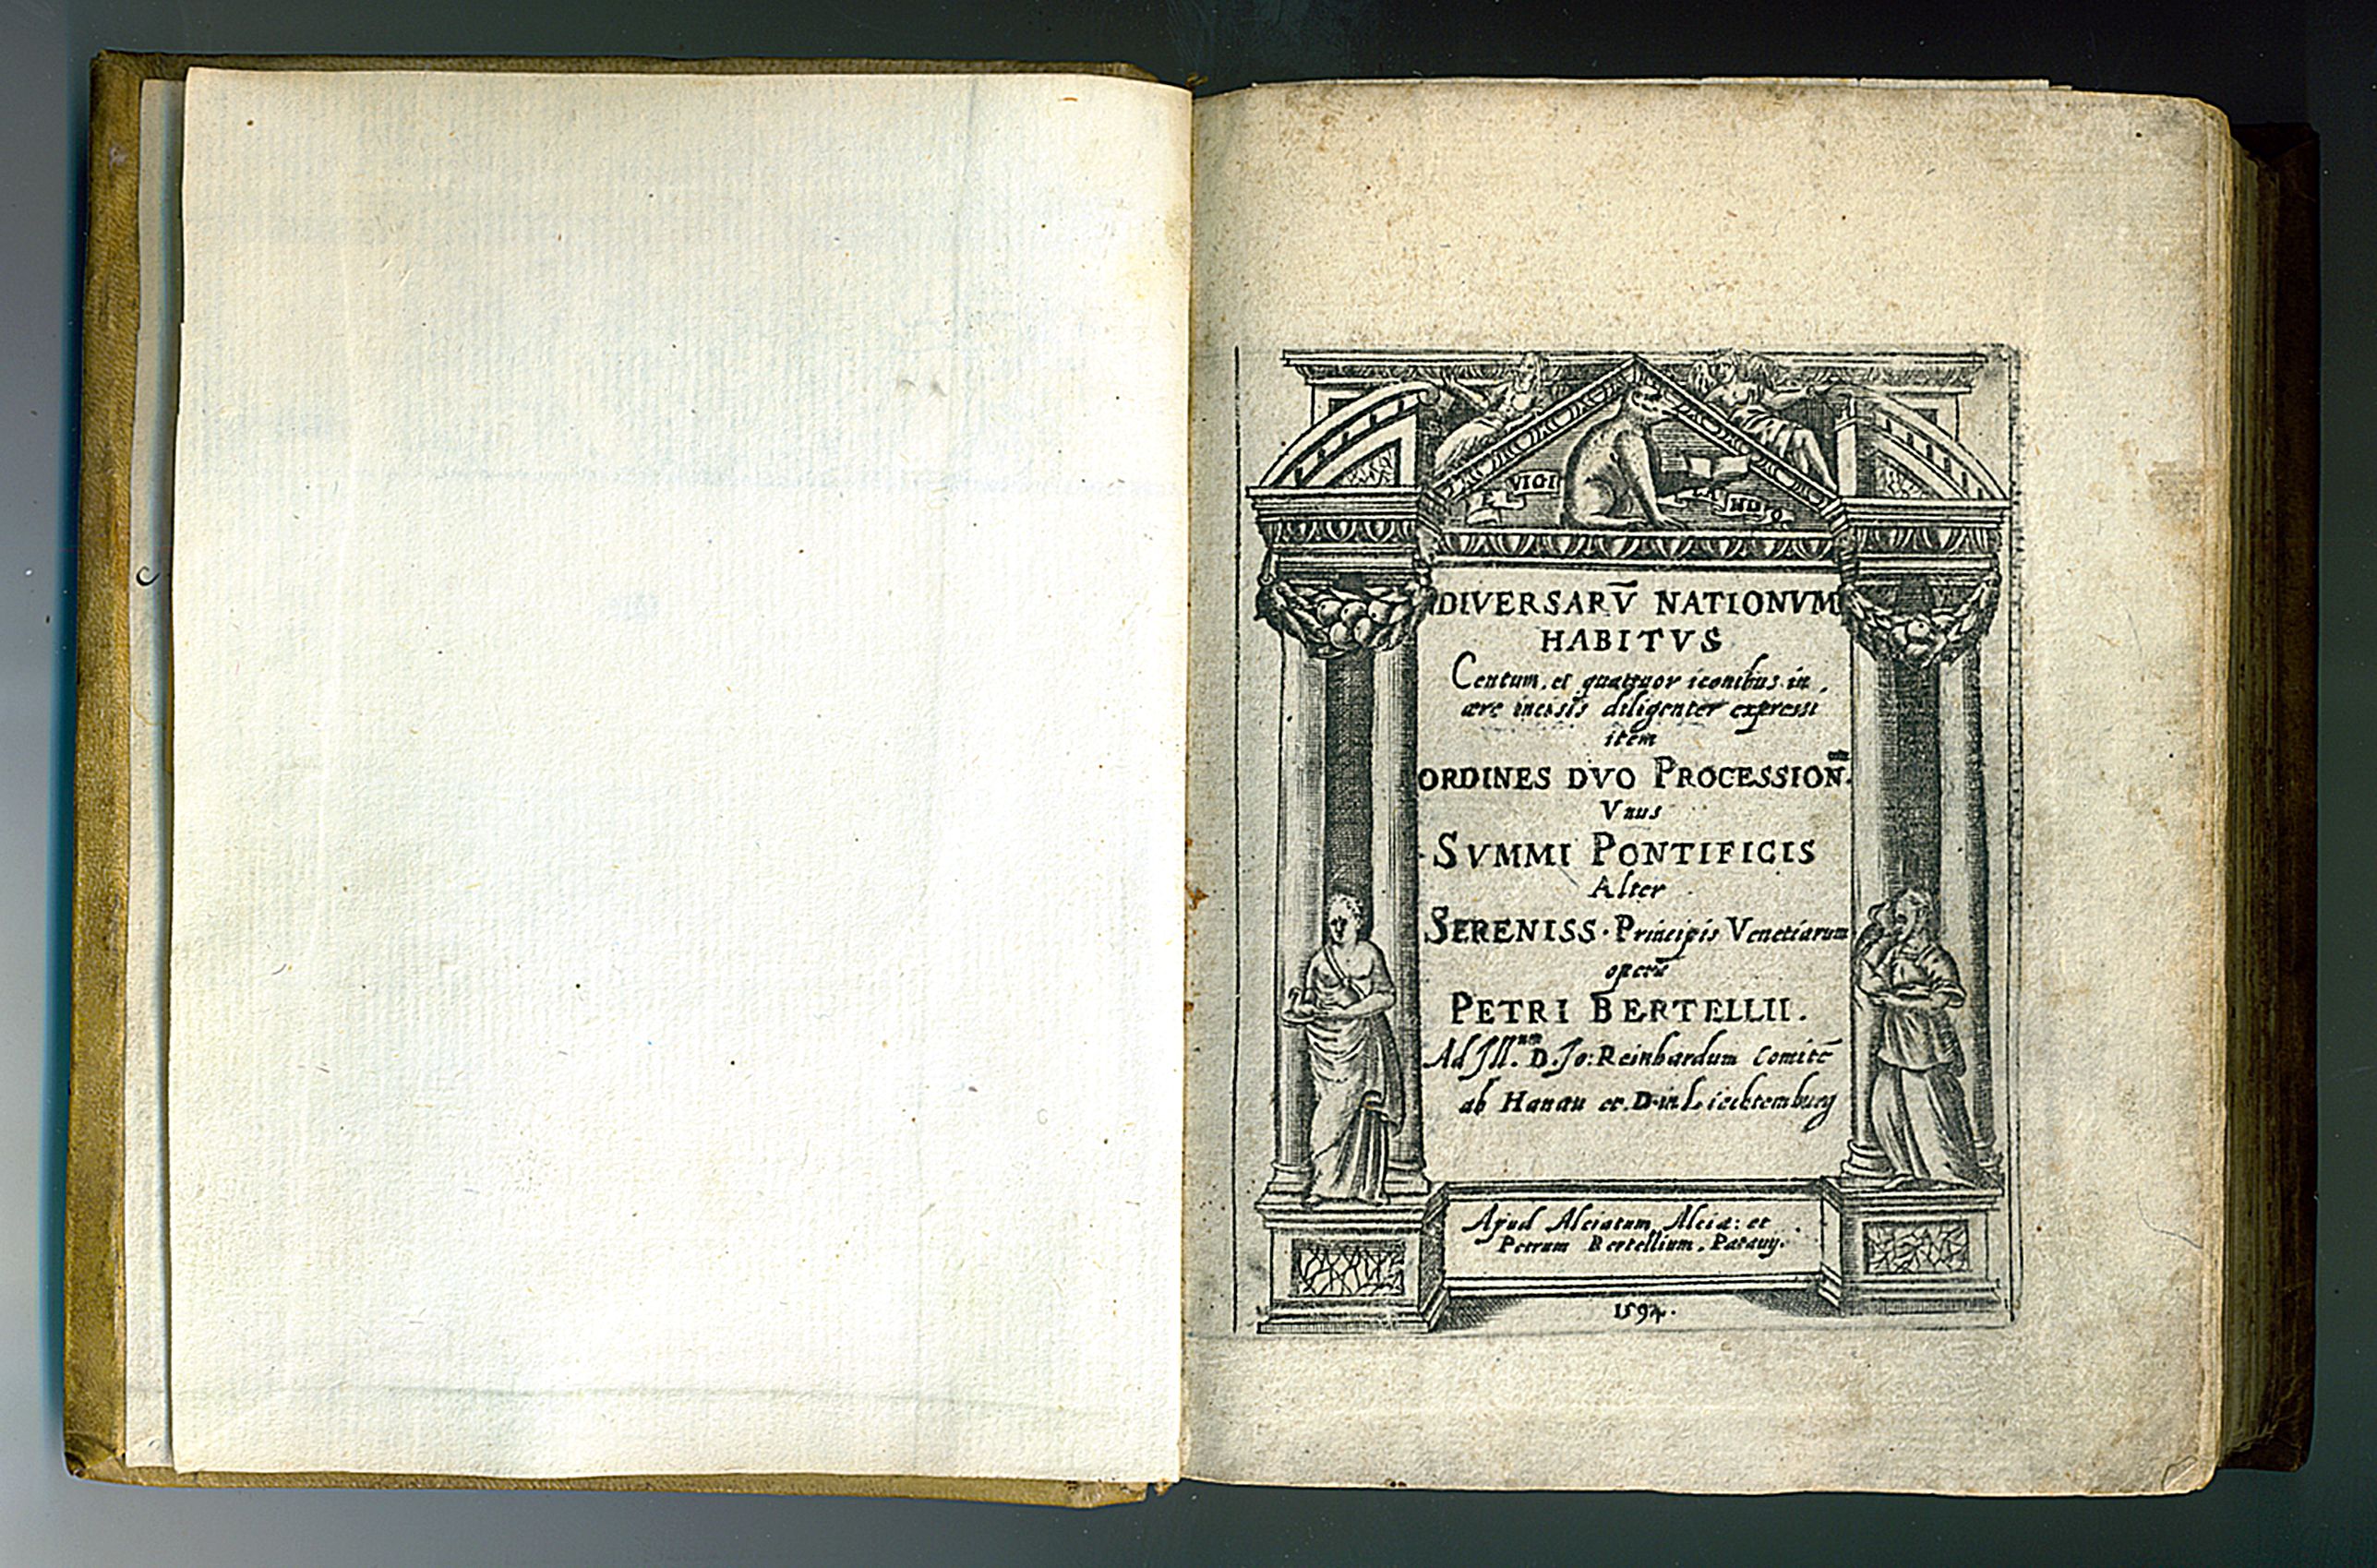 VIGI LANDO.
DIVERSARV̄ NATIONVM
HABITVS
Centum, et quattuor iconibus in
ære incisis diligenter expressi
item
ORDINES DVO PROCESSION̄.
Vnus
SVMMI PONTIFICIS
Alter
SERENISS. Principis Venetiarum
operā
PETRI BERTELLII.
Ad Jll.um D. Jo: Reinhardum Comitē
ab Hanau et. D. in Liechtemburg
Apud Alciatum Alciā: et
Petrum Bertellium. Patauij.
1594.